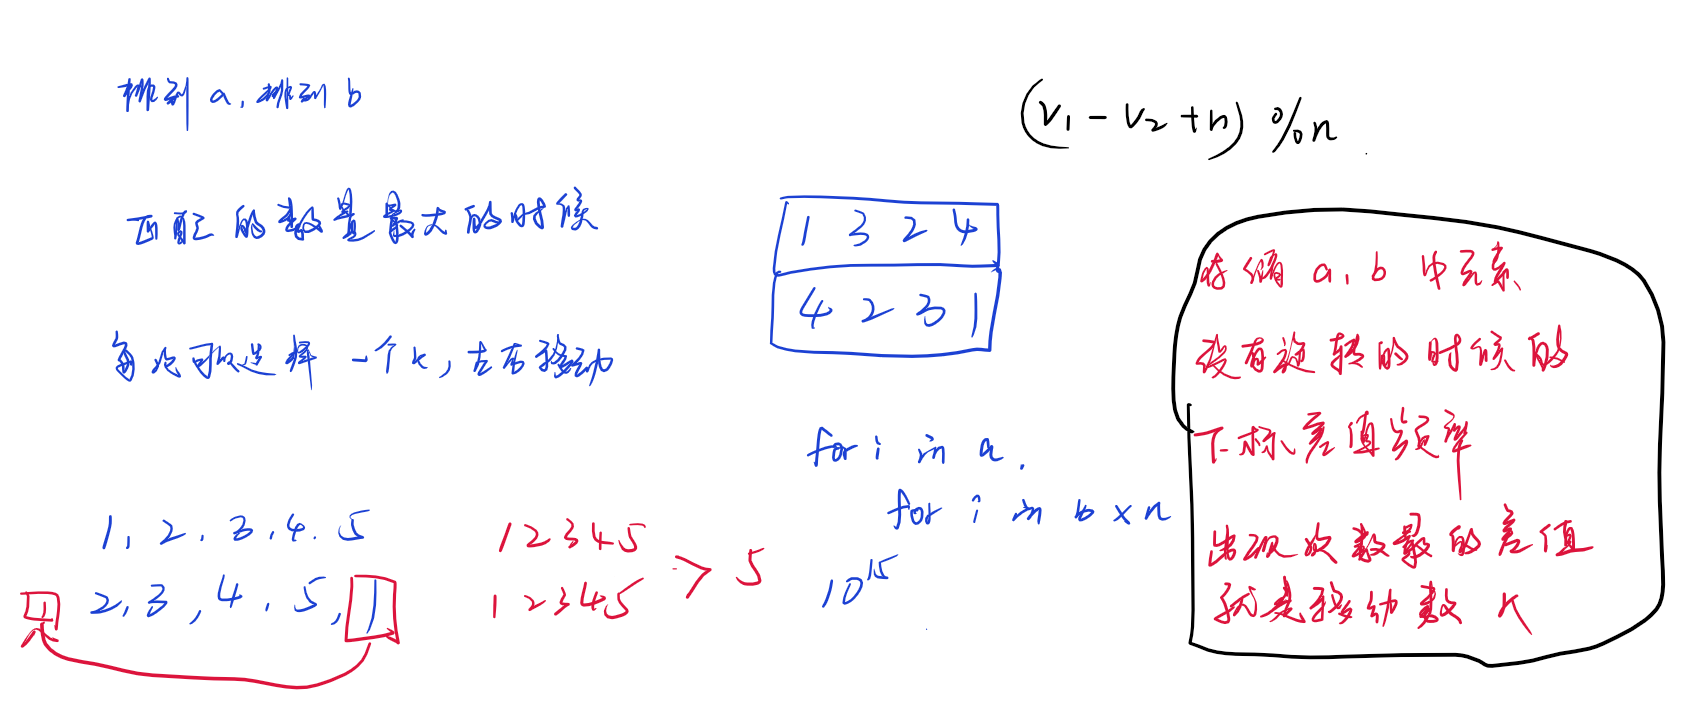 排列a,排列b
匹配的数量最大的时候
每次可以选择一个k,左右移动
1,2,3,4.5
2,3,4.5,1
1
12345
12345
-> 5
(V1-V2+n)%n
1 3 2 4
4 2 3 1
for i in a.
for i in b x n
10^15
存储a,b中元素
没有旋转的时候的
下标差值频率
出现次数最的差值
就是移动数K